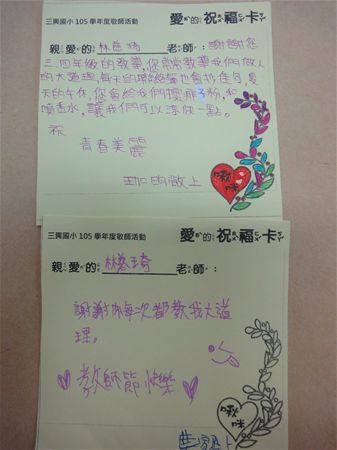 三興國小 105 學年度敬師活動
愛的祝福卡
親愛的 林 老師：謝謝您
三、四年級的教導，你常常教導我們做人
的大道理，每天的
天的午休，您會給我們擦痱子粉，和
噴香水，讓我們可以涼快一點。
祝
青春美麗
敬上
啾咪
三興國小 105 學年度敬師活動
愛的祝福卡
親愛的 林 琦 老師：
謝謝你每次都教我大道
理。
教師節快樂
啾咪
上